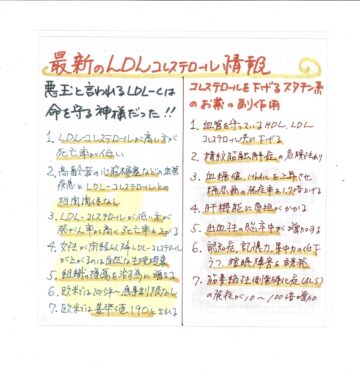 最新のLDLコレステロール情報
悪玉と言われるLDL-Cは
命を守る神様だった!!
1. LDLコレステロールが高い方が
死亡率が低い
2. 高齢者の心筋梗塞などの血管
疾患とLDL-コレステロールとの
相関関係なし
3. LDL-コレステロールが低い方が
死亡率が上がる
4. 女性が閉経以降LDLコレステロール
が上がるのは自然な生理現象
5. 組織を修復する為に増える
6. 欧米では2015年〜食事制限なし
7. 欧米では基準値190とされる
コレステロールを下げるスタチン系
のお薬の副作用
1. 血管を守っているHDL、LDL
コレステロール共に下げる
2. 横紋筋融解症の危険性あり
3. 血糖値、HbA1cを上昇させ
糖尿病の発症率を
4. 肝機能に負担がかかる
5. 出血性の脳卒中が増加する
6. 認知症、記憶力、集中力の低下
うつ、睡眠障害を誘発
7. 筋萎縮性側索硬化症(ALS)
の発症が10〜100倍増加